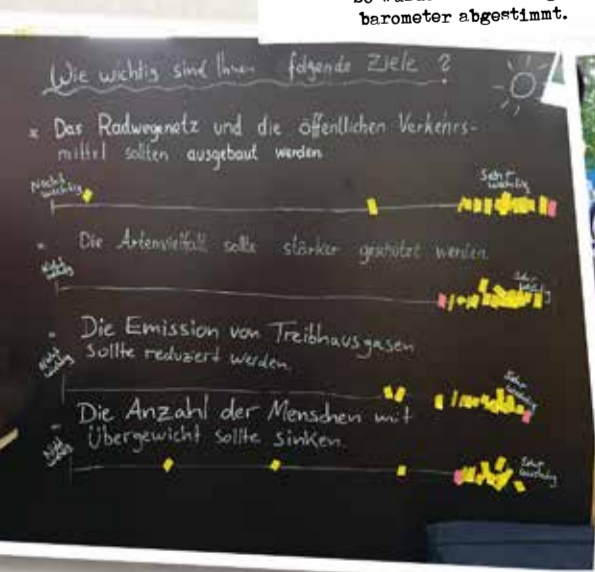 barometer abgestimmt.
Wie wichtig sind Ihnen folgende Ziele ?
* Das Radwegenetz und die öffentlichen Verkehrs-
mittel sollten ausgebaut werden
Nicht wichtig
Sehr wichtig
Die Artenvielfalt sollte stärker geschützt werden.
Nicht wichtig
Sehr wichtig
Die Emission von Treibhausgasen
sollte reduziert werden.
Nicht wichtig
Sehr wichtig
Die Anzahl der Menschen mit
Übergewicht sollte sinken.
Nicht wichtig
Sehr wichtig